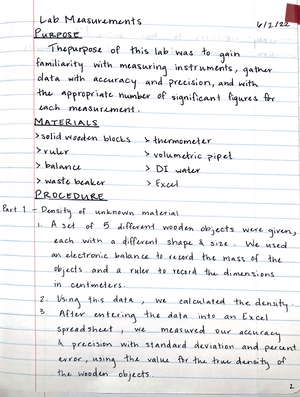 Lab Measurements
6/2/22
PURPOSE
Thepurpose of this lab was to gain
familiarity with measuring instruments, gather
data with accuracy and precision, and with
the appropriate number of significant figures for
each measurement.
MATERIALS
> solid wooden blocks > thermometer
> ruler > volumetric pipet
> balance > DI water
> waste beaker > Excel
PROCEDURE
Part 1 - Density of unknown material
1. A set of 5 different wooden objects were given,
each with a different shape & size. We used
an electronic balance to record the mass of the
objects and a ruler to record the dimensions
in centmeters.
2. Using this data, we calculated the density.
3. After entering the data into an Excel
spreadsheet, we measured our accuracy
& precision with standard deviation and percent
error, using the value for the true density of
the wooden objects.
2